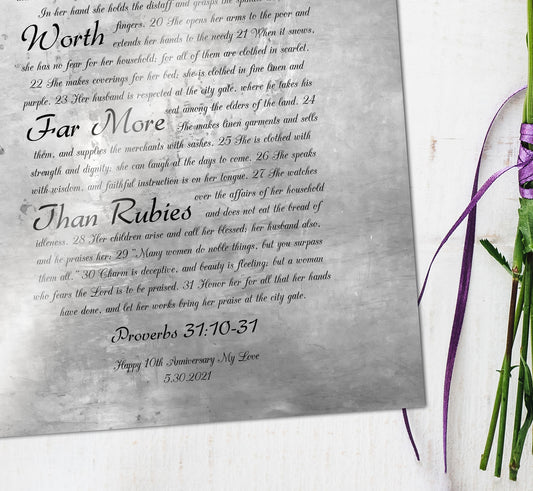 In her hand she holds the distaff and grasps the spindle
Worth fingers. 20 She opens her arms to the poor and
extends her hands to the needy 21 When it snows,
she has no fear for her household; for all of them are clothed in scarlet.
22 She makes coverings for her bed; she is clothed in fine linen and
purple. 23 Her husband is respected at the city gate, where he takes his
Far More seat among the elders of the land. 24
She makes linen garments and sells
them, and supplies the merchants with sashes. 25 She is clothed with
strength and dignity; she can laugh at the days to come. 26 She speaks
with wisdom, and faithful instruction is on her tongue. 27 She watches
Than Rubies over the affairs of her household
and does not eat the bread of
idleness. 28 Her children arise and call her blessed; her husband also,
and he praises her: 29 "Many women do noble things, but you surpass
them all." 30 Charm is deceptive, and beauty is fleeting; but a woman
who fears the Lord is to be praised. 31 Honor her for all that her hands
have done, and let her works bring her praise at the city gate.
Proverbs 31:10-31
Happy 10th Anniversary My Love
5.30.2021